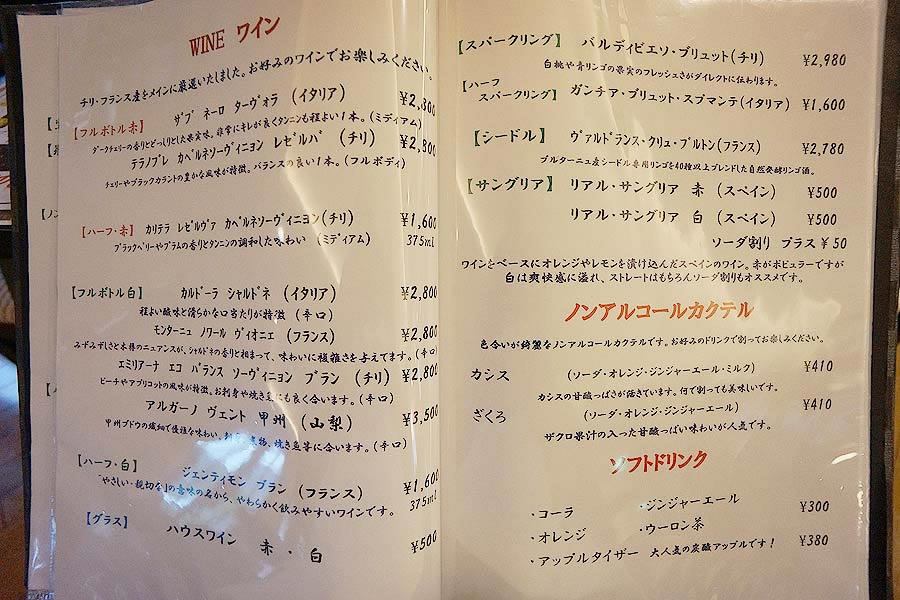 WINE ワイン
チリ・フランス産をメインに厳選いたしました。お好みのワインでお楽しみください。
【フルボトル赤】 ザブ ネーロ ターヴォラ （イタリア） ¥2,800
ダークチェリーの香りとどっしりとした果実味。非常にキレが良くタンニンも程よい1本。（ミディアム）
テラノブレ カベルネソーヴィニヨン レゼルバ （チリ） ¥2,800
チェリーやブラックカラントの豊かな風味が特徴。バランスの良い1本。（フルボディ）
【ハーフ・赤】 カリテラ レゼルヴァ カベルネソーヴィニヨン（チリ） ¥1,600
ブラックベリーやプラムの香りとタンニンの調和した味わい （ミディアム） 375ml
【フルボトル白】 カルドーラ シャルドネ （イタリア） ¥2,800
程よい酸味と滑らかな口当たりが特徴 （辛口）
モンターニュ ノワール ヴィオニエ （フランス） ¥2,800
みずみずしさと木樽のニュアンスが、シャルドネの香りと相まって、味わいに複雑さを与えてます。（辛口）
エミリアーナ エコ バランス ソーヴィニヨン ブラン （チリ） ¥2,800
ピーチやアプリコットの風味が特徴。お刺身や焼き魚にも良く合います。（辛口）
アルガーノ ヴェント 甲州 （山梨） ¥3,500
甲州ブドウの繊細で優雅な味わい。 焼き魚等に合います。（辛口）
【ハーフ・白】 ジェンティモン ブラン （フランス） ¥1,600
「やさしい・親切な」の意味の名から、やわらかく飲みやすいワインです。 375ml
【グラス】 ハウスワイン 赤・白 ¥500
【スパークリング】 バルディビエソ・ブリュット（チリ） ¥2,980
白桃や青リンゴの果実のフレッシュさがダイレクトに伝わります。
【ハーフ
スパークリング】 ガンチア・ブリュット・スプマンテ（イタリア） ¥1,600
【シードル】 ヴァルドランス・クリュ・ブルトン（フランス） ¥2,780
ブルターニュ産シードル専用リンゴを40種以上ブレンドした自然発酵リンゴ酒。
【サングリア】 リアル・サングリア 赤 （スペイン） ¥500
リアル・サングリア 白 （スペイン） ¥500
ソーダ割り プラス¥50
ワインとベースにオレンジやレモンを漬け込んだスペインのワイン。赤がポピュラーですが
白は爽快感に溢れ、ストレートはもちろんソーダ割りもオススメです。
ノンアルコールカクテル
色合いが綺麗なノンアルコールカクテルです。お好みのドリンクで割ってお楽しみください。
カシス （ソーダ・オレンジ・ジンジャーエール・ミルク） ¥410
カシスの甘酸っぱさが活きています。何で割っても美味しいです。
ざくろ （ソーダ・オレンジ・ジンジャーエール） ¥410
ザクロ果汁の入った甘酸っぱい味わいが人気です。
ソフトドリンク
・コーラ ・ジンジャーエール ¥300
・オレンジ ・ウーロン茶
・アップルタイザー 大人気の炭酸アップルです！ ¥380